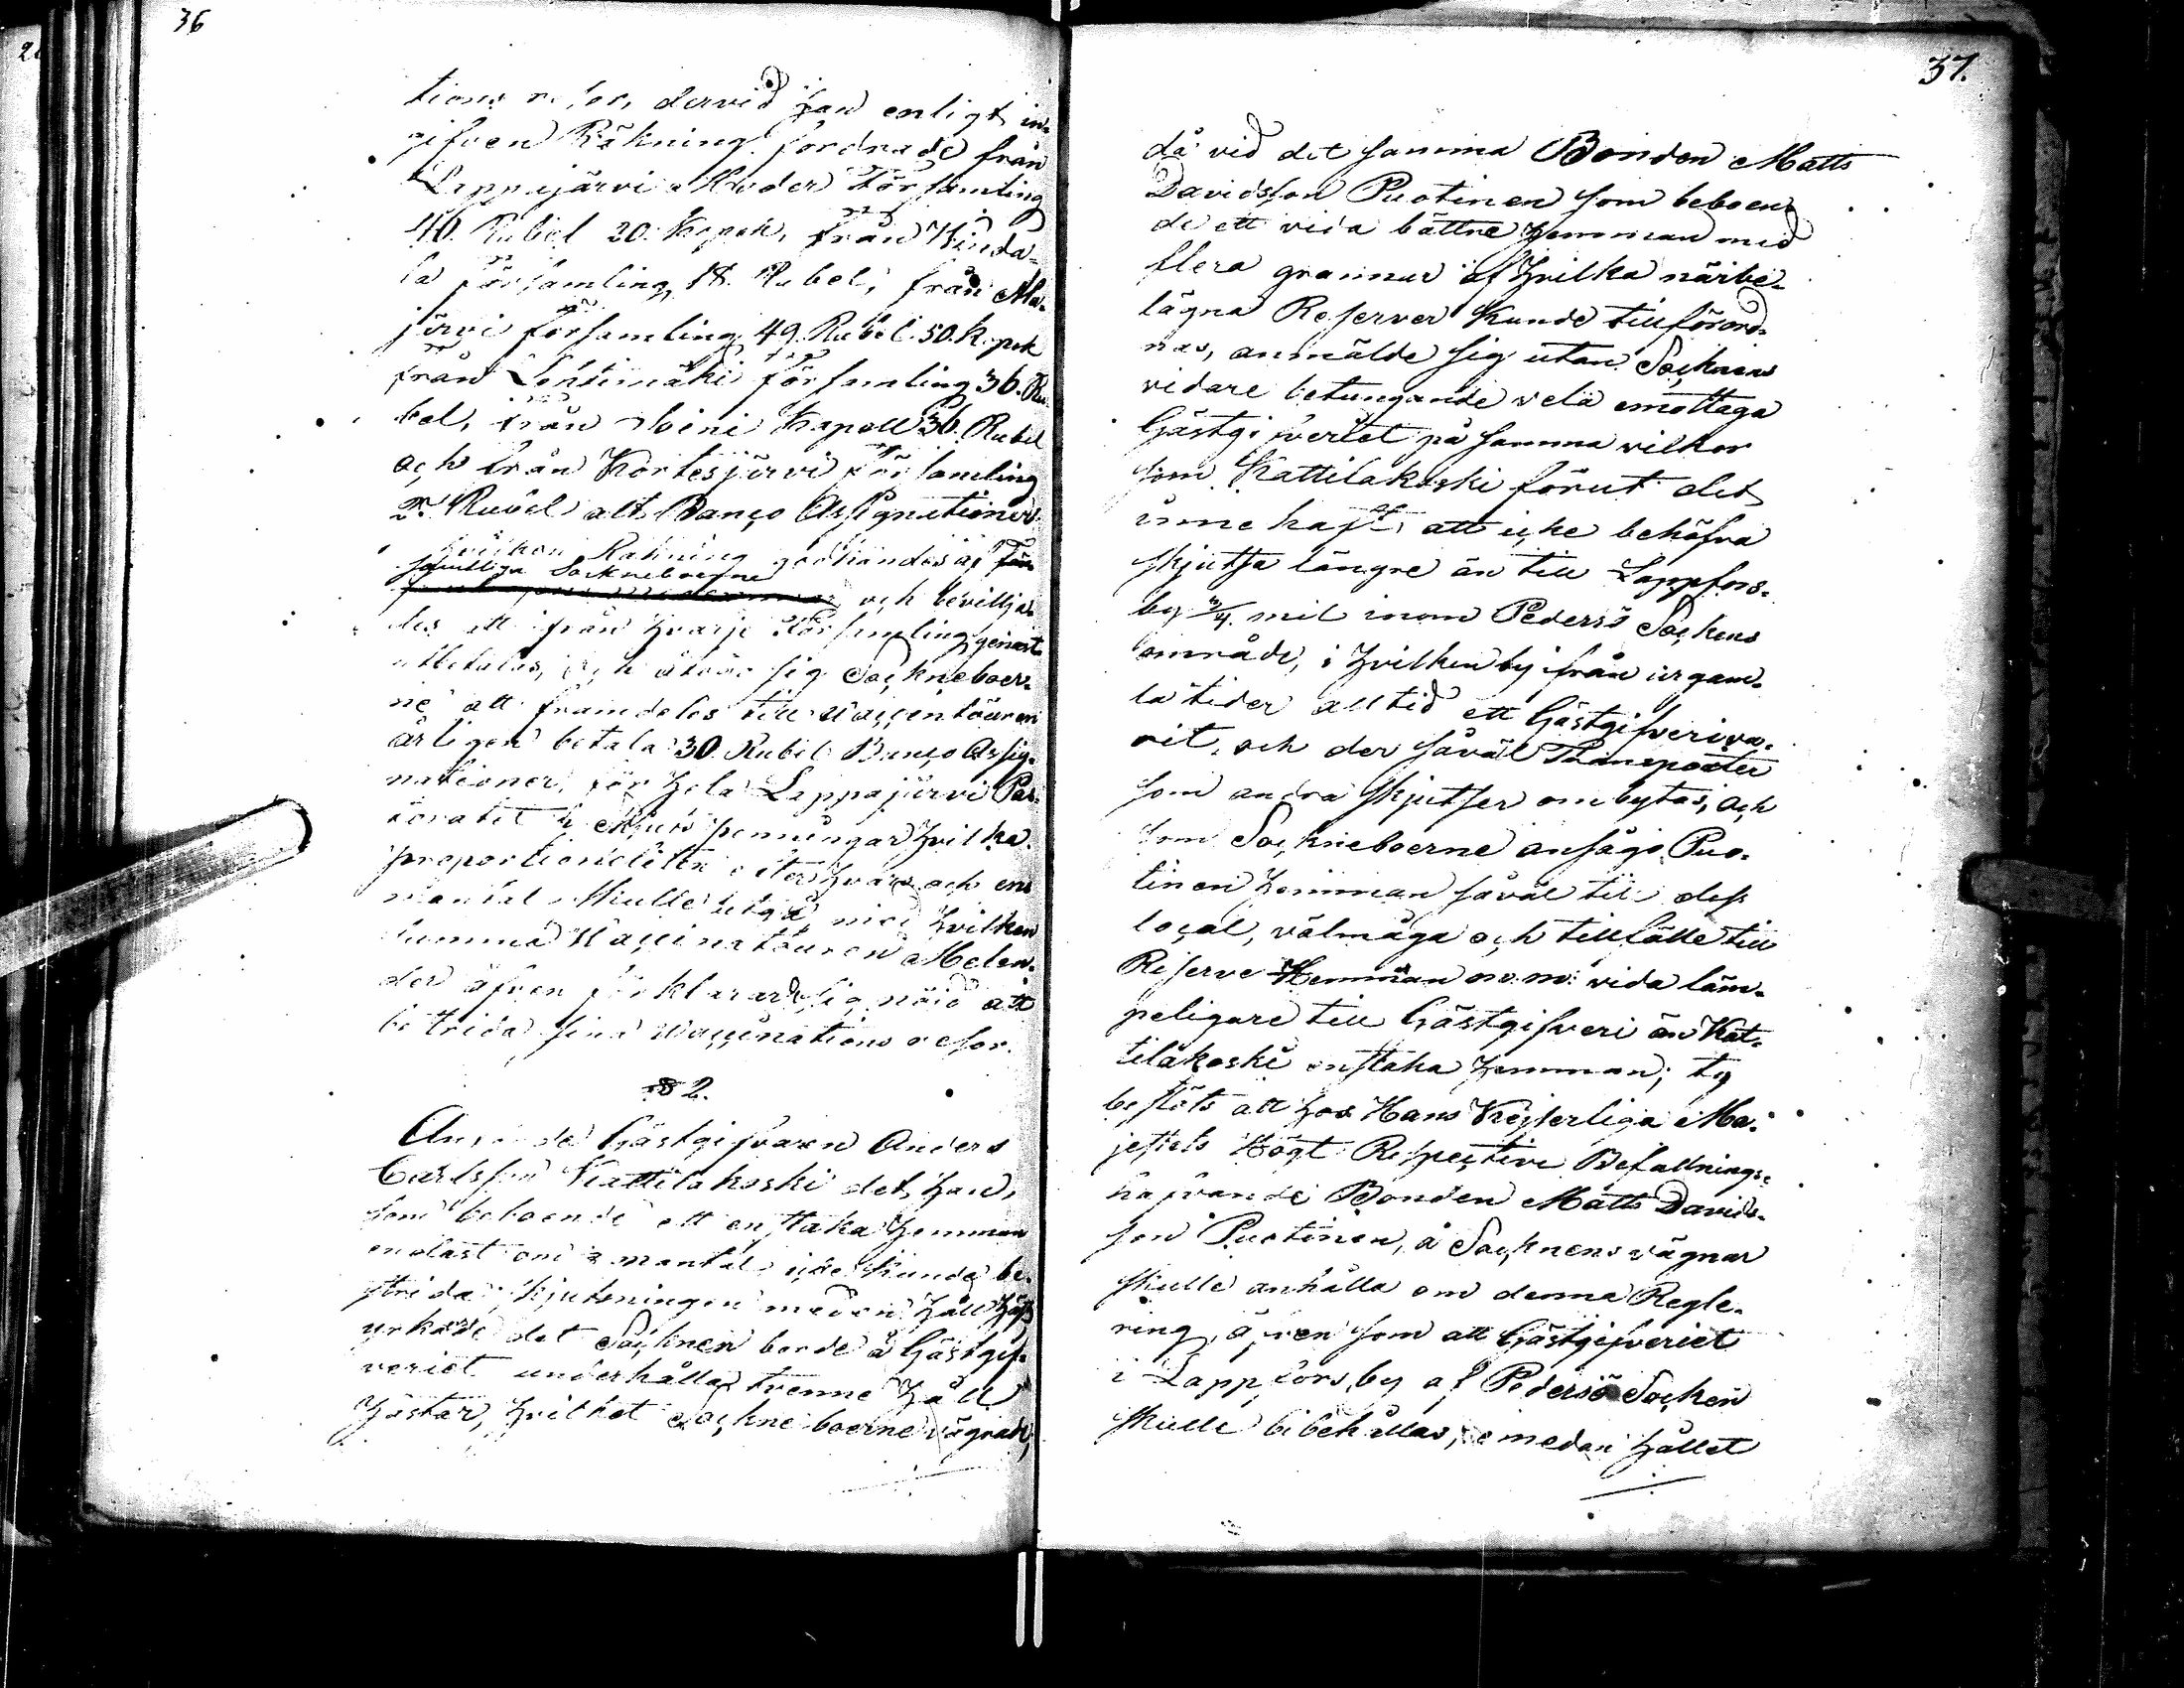 36
tions resor, dervid han enligt in-
gifven Räkning fordrade från
Lappajärvi Moder Församling
40. Rubel 20. Kopek, från Winda-
la församling 18. Rubel, från
järvi församling 49. Rubel 50. Kopek
från Lehtimäki församling 36. Ru-
bel, från Soini Kapell 36. Rubel
och från Kortesjärvi församling
2. Rubel alt Banco Assignationer
hvilken Räkning godkändes af
samtliga Sockneboerne
och bevilja-
des att från hvarje Församling genast
utbetalas, och åtogo sig Sockneboer-
ne att framdeles till Vaccinatöuren
årligen betala 30. Rubel Banco Assig-
nationer, för hela Lappajärvi Pas-
toratet i Skjuts penningar hvilka
proportionéliter efter hvars och ens
mantal skulle utgå, med hvilken
Summa Vaccinatöuren Melen-
der äfven förklarade sig nöjd att
bestrida sina Vaccinations resor.
§ 2.
Anmälde Gästgifvaren Anders
Carlsson Kattilakoski det han,
som beboende ett enstaka hemman
endast om mantal icke kunde be-
strida skjutsningen med en håll häst
yrkade det Socknen borde å Gästgif-
veriet underhålla trenne håll
hästar, hvilket Sockneboerne vägrade,
37.
då vid det samma Bonden Matts
Davidsson Puotinen som beboen-
de ett vida bättre hemman med
flera grannar af hvilka närbe-
lägna Reserver kunde tillförord-
nas, anmälde sig utan Socknens
vidare betungande vela emottaga
Gästgifveriet på samma vilkor
som Kattilakoski förut det
innehaft, att icke behöfva
skjutsa längre än till Lappfors
by 3/4. mil inom Pedersö Sockens
område, i hvilken by ifrån urgam-
la tider alltid ett Gästgifveri va-
rit, och der såväl Transporter
som andra skjutser ombytas, och
som Sockneboerne ansågo Puo-
tinen hemman såväl till dess
local, välmåga och tillfälle till
Reserve Hemman m. m. vida läm-
peligare till Gästgifveri än Kat-
tilakoski enstaka hemman; ty
beslöts att hos Hans Kejserliga Ma-
jestets Högt Respective Befallnings-
hafvande Bonden Matts Davids-
son Puotinen, å Socknens vägnar
skulle anhålla om denna Regle-
ring, äfven som att Gästgifveriet
i Lappfors by af Pedersö Socken
skulle bibehållas, emedan hållet